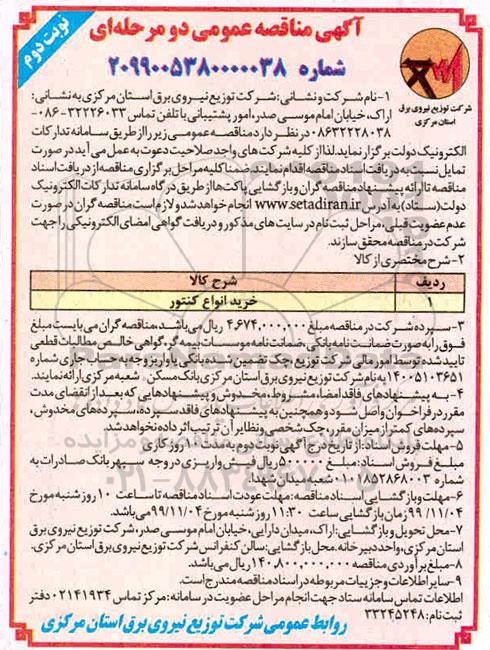 نوبت دوم
آگهی مناقصه عمومی دو مرحله‌ای
شماره ۲۰۹۹۰۰۵۳۸۰۰۰۰۰۳۸
شرکت توزیع نیروی برق
استان مرکزی
۱- نام شرکت و نشانی: شرکت توزیع نیروی برق استان مرکزی به نشانی:
اراک، خیابان امام موسی صدر، امور پشتیبانی با تلفن تماس ۳۲۲۲۶۰۳۳-۰۸۶
۰۸۶۳۲۲۲۸۰۳۸ در نظر دارد مناقصه عمومی زیر را از طریق سامانه تدارکات
الکترونیک دولت برگزار نماید. لذا از کلیه شرکت های واجد صلاحیت دعوت به عمل می آید در صورت
تمایل نسبت به دریافت اسناد مناقصه اقدام نمایند. ضمنا کلیه مراحل برگزاری مناقصه از دریافت اسناد
مناقصه تا ارائه پیشنهاد مناقصه گران و بازگشایی پاکت ها از طریق درگاه سامانه تدارکات الکترونیک
دولت (ستاد) به آدرس www.setadiran.ir انجام خواهد شد و لازم است مناقصه گران در صورت
عدم عضویت قبلی، مراحل ثبت نام در سایت های مذکور و دریافت گواهی امضای الکترونیکی را جهت
شرکت در مناقصه محقق سازند.
۲- شرح مختصری از کالا
ردیف شرح کالا
۱ خرید انواع کنتور
۳- سپرده شرکت در مناقصه مبلغ ۴،۶۷۴،۰۰۰،۰۰۰ ریال می باشد، مناقصه گران می بایست مبلغ
فوق را به صورت ضمانت نامه بانکی، ضمانت نامه موسسات بیمه گر، گواهی خالص مطالبات قطعی
تایید شده توسط امور مالی شرکت توزیع، چک تضمین شده بانکی یا واریز وجه به حساب جاری شماره
۱۴۰۰۵۱۰۳۶۵۱ به نام شرکت توزیع نیروی برق استان مرکزی بانک مسکن شعبه مرکزی ارائه نمایند.
۴- به پیشنهادهای فاقد امضا، مشروط، مخدوش و پیشنهادهایی که بعد از انقضای مدت
مقرر در فراخوان واصل شود و همچنین به پیشنهادهای فاقد سپرده، سپرده‌های مخدوش،
سپرده‌های کمتر از میزان مقرر، چک شخصی و نظایر آن ترتیب اثر داده نخواهد شد.
۵- مهلت فروش اسناد: از تاریخ درج آگهی نوبت دوم به مدت ۵ روز کاری
مبلغ فروش اسناد: مبلغ ۵۰۰،۰۰۰ ریال فیش واریزی در وجه سپهر بانک صادرات به
شماره ۰۱۰۱۸۵۲۸۶۸۰۰۳ شعبه میدان شهدا.
۶- مهلت و بازگشایی اسناد مناقصه: مهلت عودت اسناد مناقصه تا ساعت ۱۰ روز شنبه مورخ
۹۹/۱۱/۰۴ زمان بازگشایی ساعت ۱۱:۳۰ روز شنبه مورخ ۹۹/۱۱/۰۴ می باشد.
۷- محل تحویل و بازگشایی: اراک، میدان دارایی، خیابان امام موسی صدر، شرکت توزیع نیروی برق
استان مرکزی، واحد دبیرخانه. محل بازگشایی: سالن کنفرانس شرکت توزیع نیروی برق استان مرکزی.
۸- مبلغ برآوردی مناقصه ۱۴۰،۸۰۰،۰۰۰،۰۰۰ ریال می باشد.
۹- سایر اطلاعات و جزییات مربوطه در اسناد مناقصه مندرج است.
اطلاعات تماس سامانه ستاد جهت انجام مراحل عضویت در سامانه: مرکز تماس ۰۲۱۴۱۹۳۴ دفتر
ثبت نام: ۳۳۲۴۵۲۴۸
روابط عمومی شرکت توزیع نیروی برق استان مرکزی